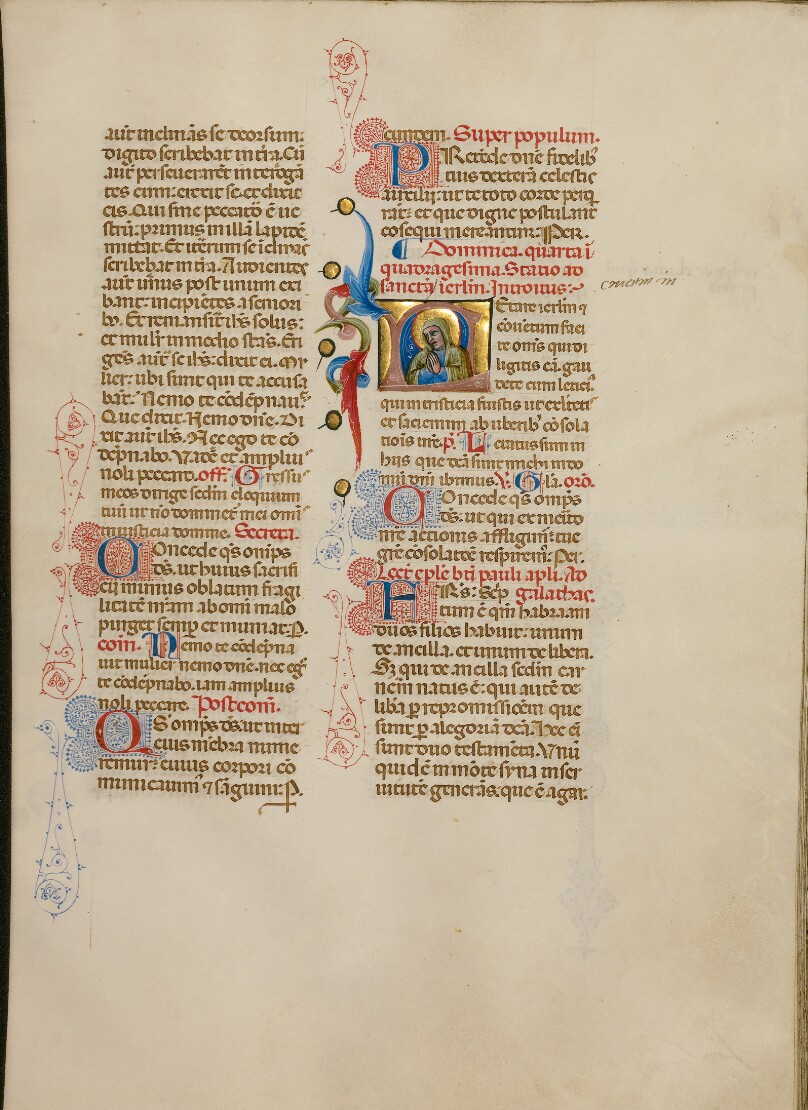 aut̄ inclināſ se deorsum:
digito scribebat in tr̄a. Cū
aut̄ perseuerarēt interrogā
tes eum: erexit se. et dixit
eis. Qui sine peccato ē ue
strū: primus in illā lapidē
mittat. Et iterum se iclināſ
scribebat in tr̄a. Audientes
aut̄ unus post unum exi
bant: incipiētes a seniori
bꝰ. Et remāsit ih̄s solus:
et muli᷑ in medio stās. Eri
gēs aut̄ se ih̄s: dixit ei. Mu
lier: ubi sunt qui te accusa
bāt. Nemo te cōdēpnauꝰ
Que dixit. Nemo dn̄e. Di
xit aut̄ ih̄s. Nec ego te cō
dēpnabo. Vade et ampliuˢ
noli peccare. off. Gressuˢ
meos dirige sedm̄ eloquium
tuū ut nō dominet᷑ mei omiˢ
iniusticia domine. Secreta.
Concede qs̄ omīps
ds̄. ut huius sacrifi
cij munus oblatum fragi
litatē nr̄am ab omi malo
purget semꝑ et muniat. P.
com̄. Nemo te cōdēpna
uit mulier nemo dn̄e. nec egº
te cōdēpnabo. iam amplius
noli peccare. Postcom̄.
Qs̄ omīps ds̄. ut inter
eius mēbra nume
remur: cuius corpori cō
municauimꝰ ⁊ sāguini: P.
eundem. Super populum.
Pretēde dn̄e fidelibꝰ
tuis dexterā celestis
auxilij: ut te toto corde perq̄
rāt: et que digne postulant
cōsequi mereantur: Per.
Dominica. quarta ī
quadragesima. Statio ad
sanctā ierlm̄. Introitus:
Letare ierlm̄ ⁊
cōuētum faci
te om̄s qui di
ligitis eā. gau
dete cum leticiˢ
qui in tristicia fuistis ut exlteti
et saciemini ab uberibꝰ cōsola
tiōis ur̄e. p̄. Letatus sum in
hijs que dc̄a sunt michi in do
mū dn̄i ibimus. V. Gl̄a. orō.
Concede qs̄ omīps
ds̄. ut qui ex merito
nr̄e actionis affligimur: tue
gr̄e cōsolatōe respirem᷑. Per.
Lect̄ ep̄le bt̄i pauli apl̄i. Ad
Fr̄s: Scp̄ galathas.
tum ē qm̄ habraam
duos filios habuit: unum
de ancilla. et unum de libera.
Sꝫ qui de ancilla sedm̄ car
nem natus ē: qui autē de
liba ꝑ repromissiōem que
sunt ꝑ alegoriā dc̄a. Hec eī
sunt duo testamēta. Vnū
quidē in mōte syna in ser
uitutē generās: que ē agar.